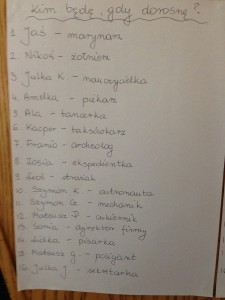 Kim będę, gdy dorosnę?
1. Jaś - marynarz
2. Nikoś - żołnierz
3. Julka K - nauczycielka
4. Amelka - piekarz
5. Ala - tancerka
6. Kacper - taksówkarz
7. Franio - archeolog
8. Zosia - ekspedientka
9. Leoś - strażak
10. Szymon K - astronauta
11. Szymon G. - mechanik
12. Mateusz P. - cukiernik
13. Sonia - dyrektor firmy
14. Lidka - pisarka
15. Mateusz g - policjant
16. Julka J. - sekretarka